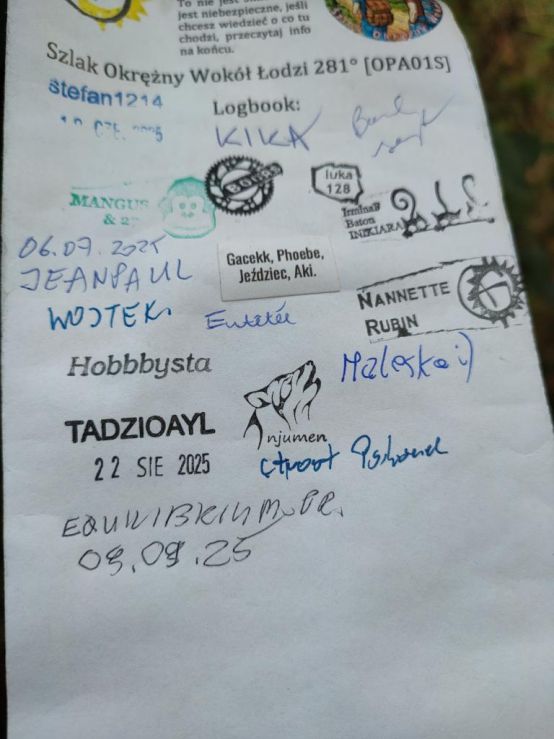 To nie jest
jest niebezpieczne, jeśli
chcesz wiedzieć o co tu
chodzi, przeczytaj info
na końcu.
Szlak Okrężny Wokół Łodzi 281° [OPA01S]
stefan1214
Logbook:
CZE 2025
KIKA
luka
128
MANGUS
& 2
IrminaB
Baton
INIKIARA
06.07.2025
JEANPAUL
Gacekk, Phoebe,
Jeździec, Aki.
NANNETTE
RUBIN
WOJTEK
Hobbbysta
Maleska :)
TADZIOAYL
njumen
22 SIE 2025
EQUILIBRIUM_PR.
09.09.25